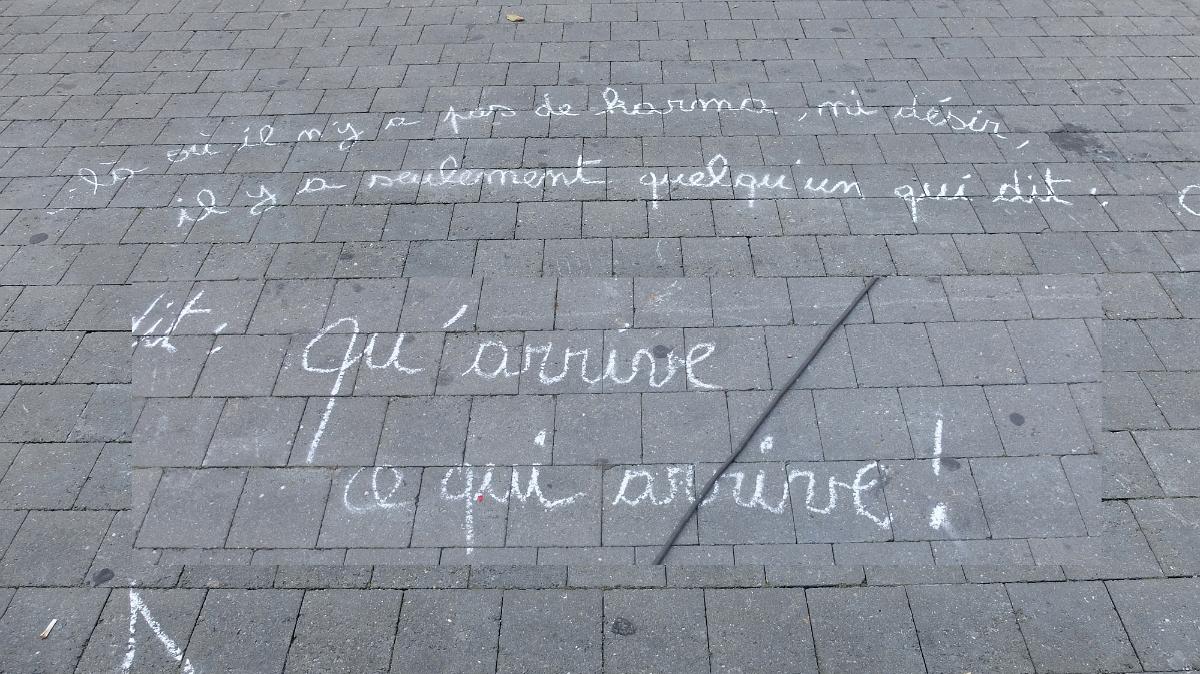 là où il n'y a pas de karma, ni désir,
il y a seulement quelqu'un qui dit :
dit : Qu'arrive
ce qui arrive !